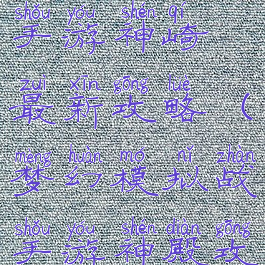 shǒu yóu shén qí
手游神崎
zuì xīn gōng lüè
最新攻略（
mèng huàn mó nǐ zhàn
梦幻模拟战
shǒu yóu shén diàn gōng
手游神殿攻